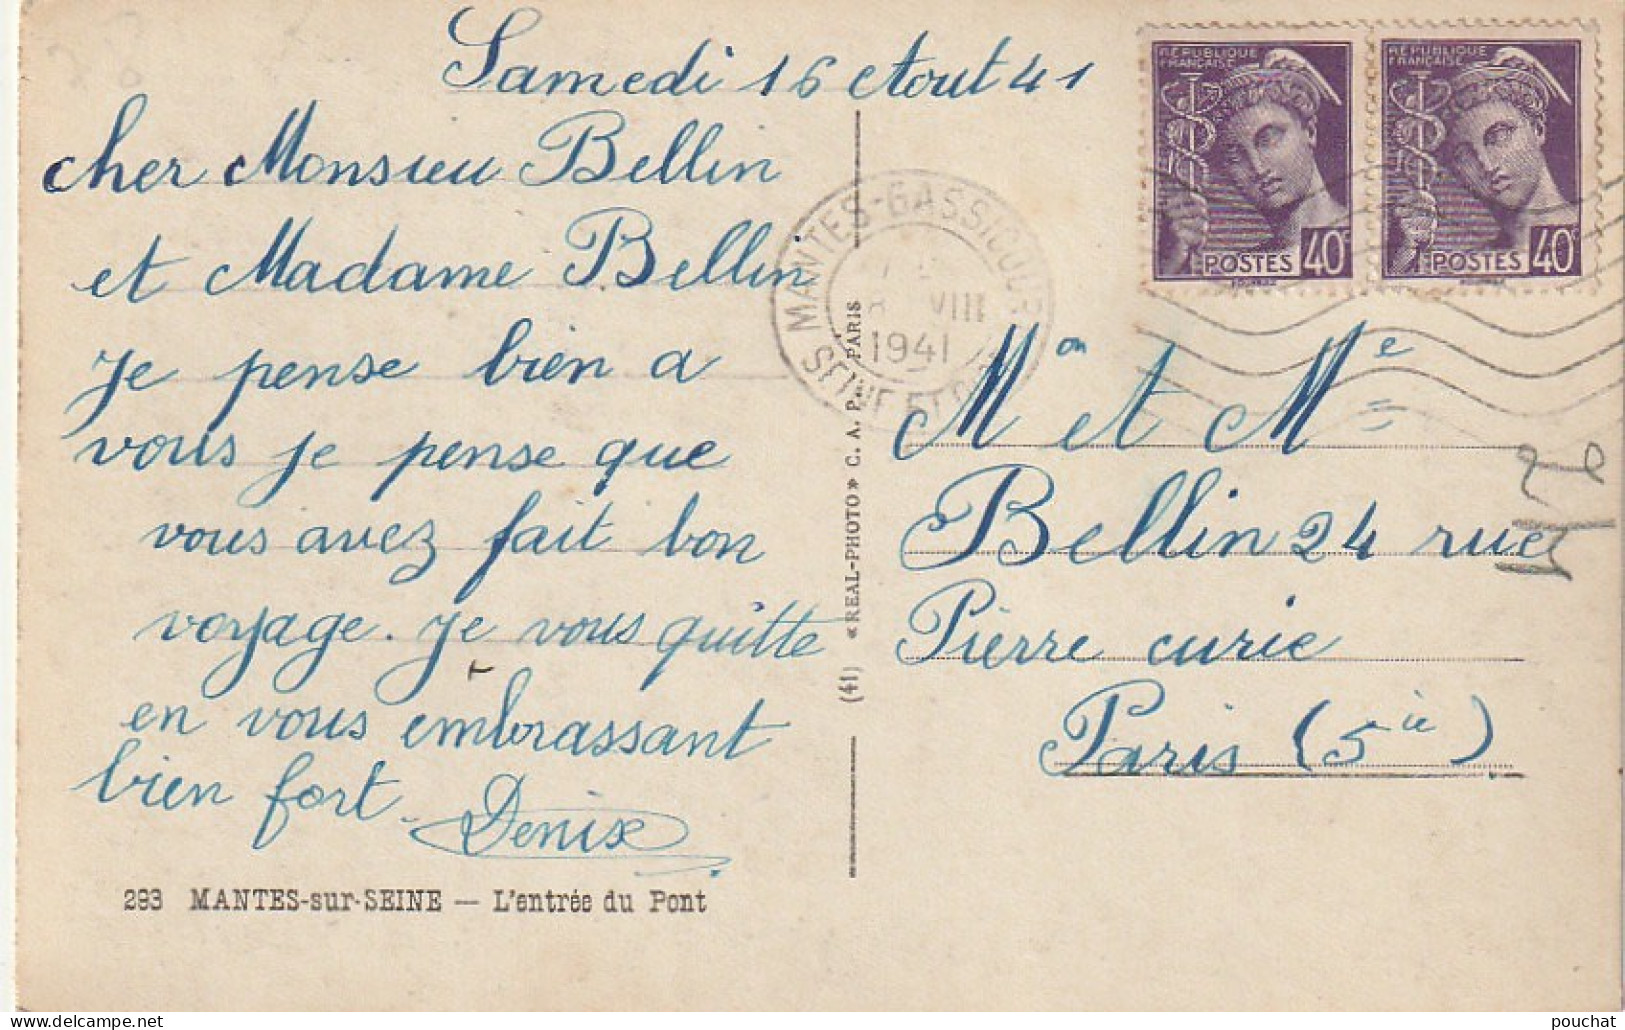 Samedi 16 Aout 41
cher Monsieu Bellin
et Madame Bellin
Je pense bien a
vous je pense que
vous avez fait bon
voyage. Je vous quitte
en vous embrassant
bien fort. Denise
293 MANTES-sur-SEINE — L'entrée du Pont
(41) «REAL-PHOTO» C. A. P. PARIS
MANTES-GASSICOURT
8 VIII
1941
SEINE ET
RÉPUBLIQUE
FRANÇAISE
POSTES 40c
RÉPUBLIQUE
FRANÇAISE
POSTES 40c
Mon et Me
Bellin 24 rue
Pierre curie
Paris (5ie)
pouchat